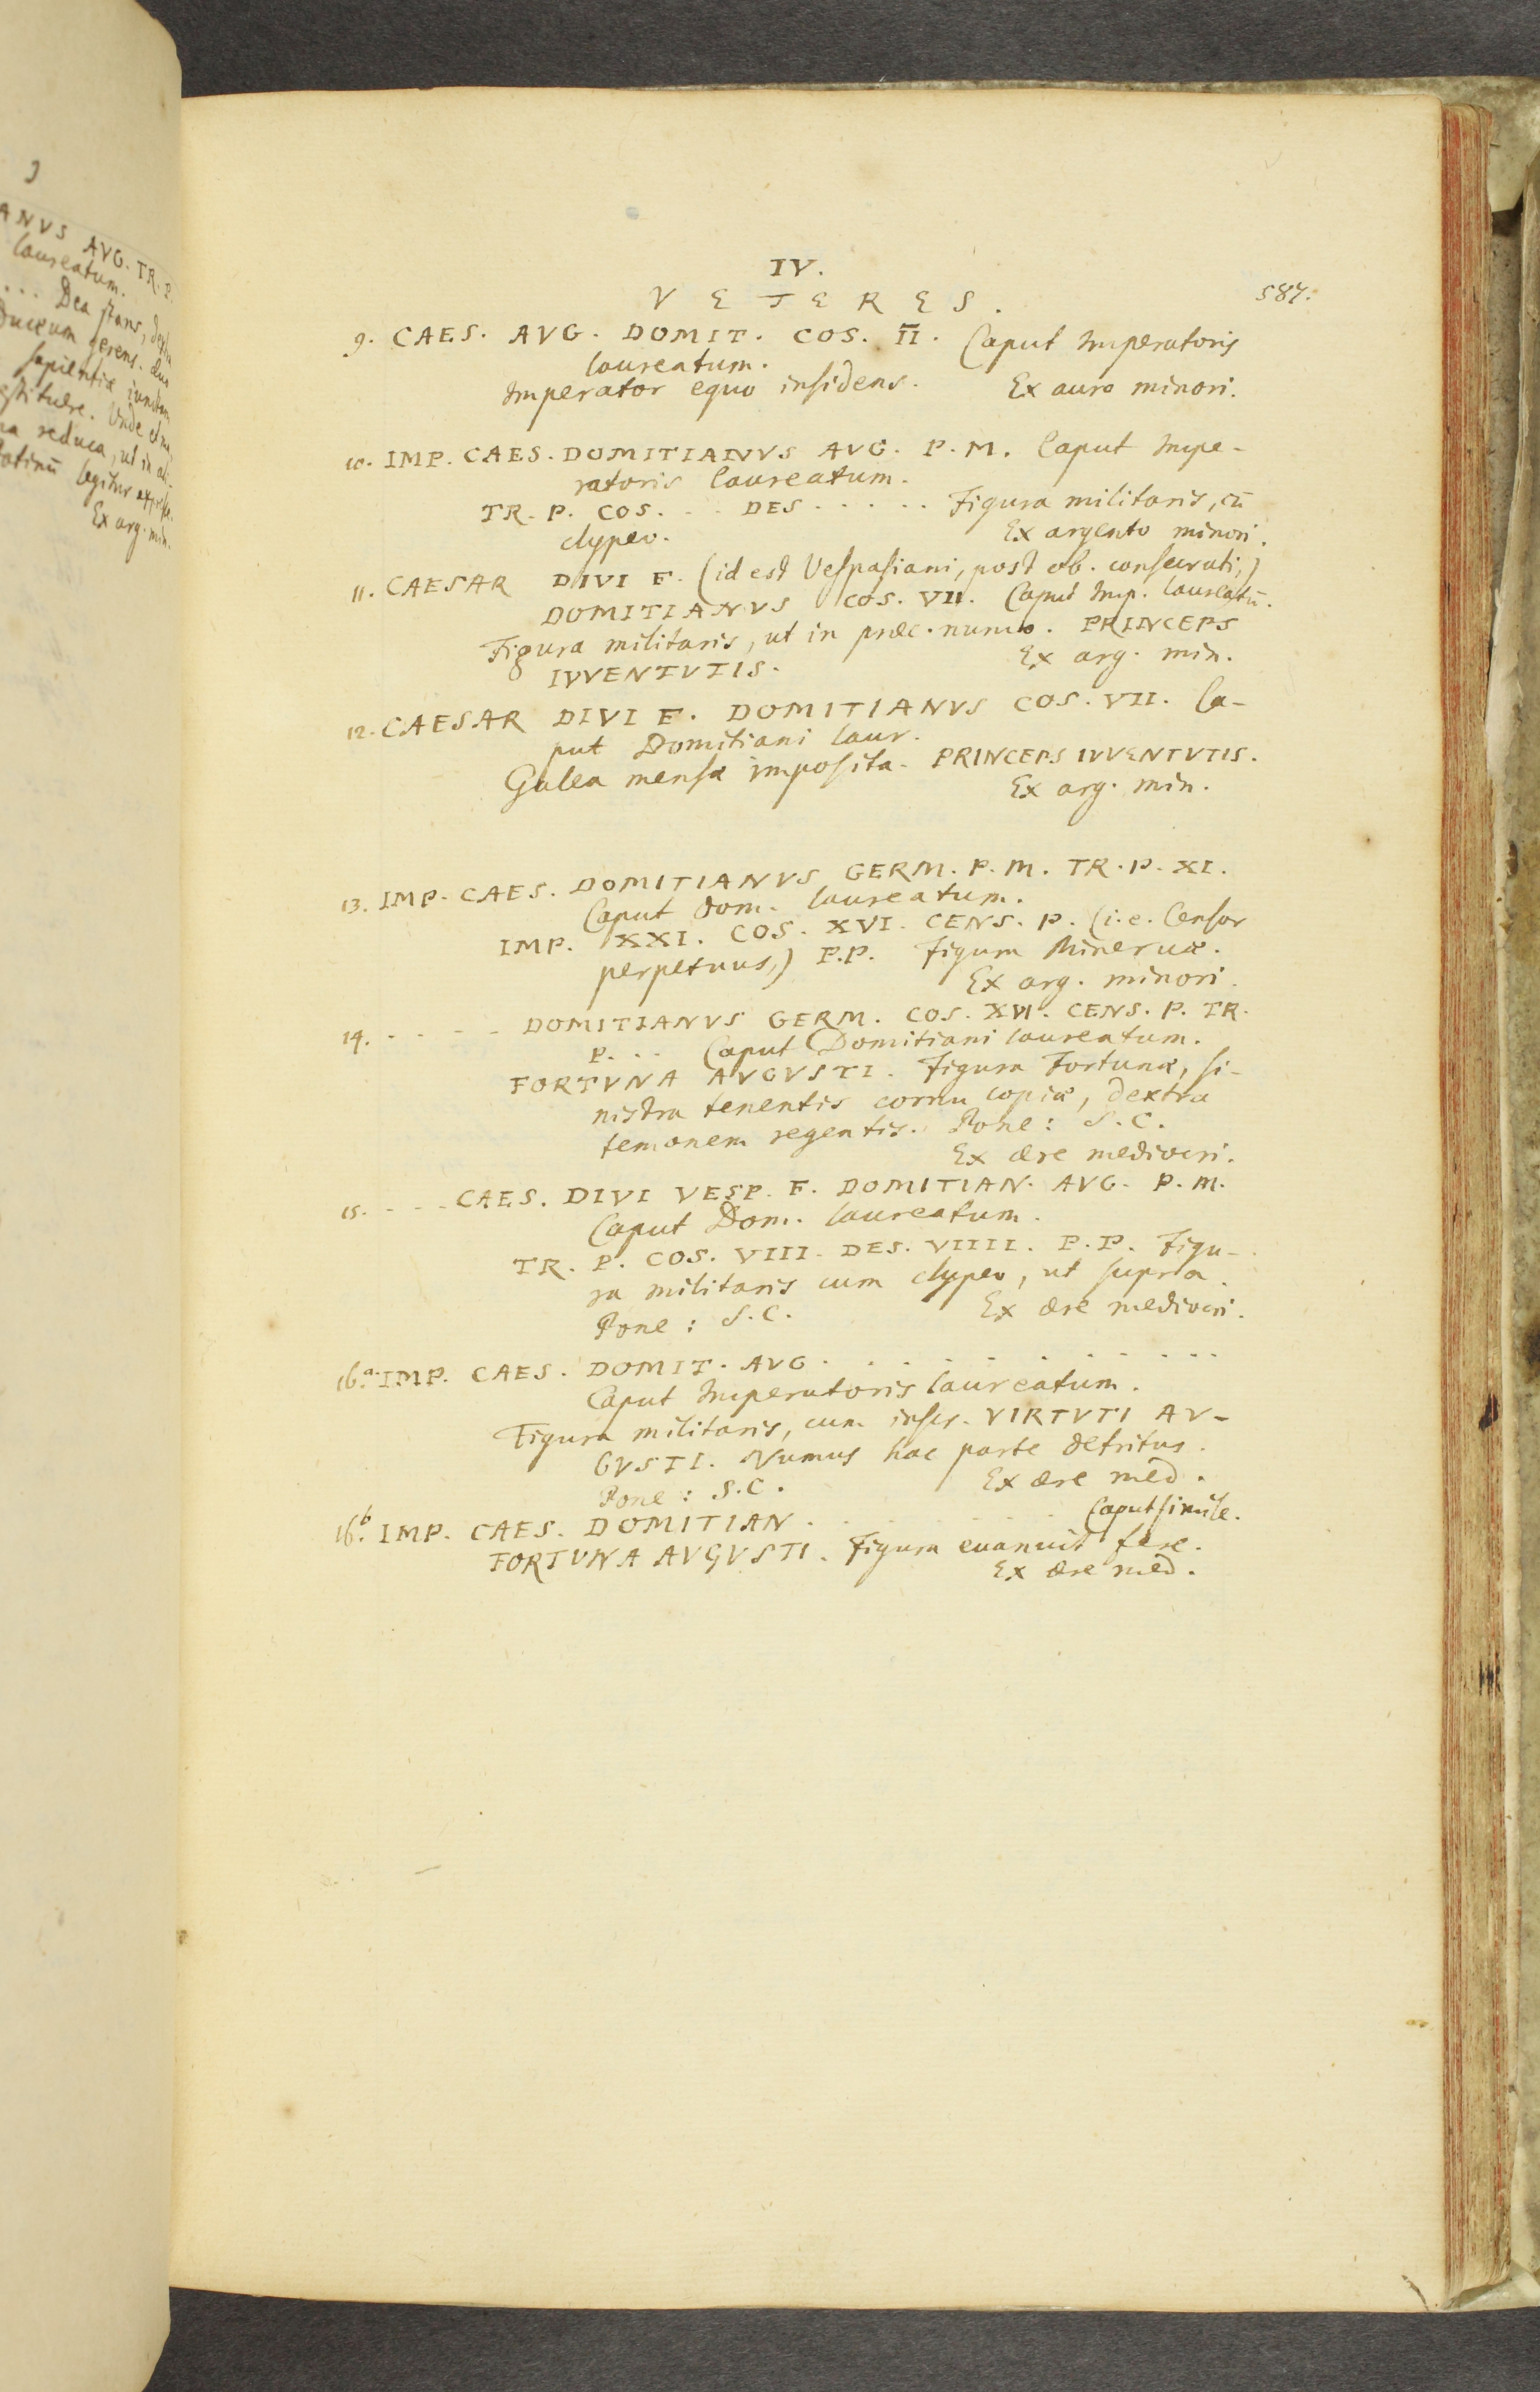 ANVS AVG. TR. P.
laureatum.
... Dea stans,
gerens.
sapientiæ
Unde
reduca, ut in
legitur
Ex arg. min.
IV.
VETERES.
587.
9. CAES. AVG. DOMIT. COS. II. Caput Imperatoris
laureatum.
Imperator equo insidens. Ex auro minori.
10. IMP. CAES. DOMITIANVS AVG. P. M. Caput Impe-
ratoris laureatum.
TR. P. COS. . . DES . . . . . Figura militaris, cū
clypeo. Ex argento minori.
11. CAESAR DIVI F. (id est Vespasiani, post ob. consecrati,)
DOMITIANVS COS. VII. Caput Imp. laureatū.
Figura militaris, ut in præc. numo. PRINCEPS
IVVENTVTIS. Ex arg. min.
12. CAESAR DIVI F. DOMITIANVS COS. VII. Ca-
put Domitiani laur.
Galea mensæ imposita. PRINCEPS IVVENTVTIS.
Ex arg. min.
13. IMP. CAES. DOMITIANVS GERM. P. M. TR. P. XI.
Caput Dom. laureatum.
IMP. XXI. COS. XVI. CENS. P. (i. e. Censor
perpetuus,) P.P. Figura Mineruæ.
Ex arg. minori.
14. - - - - DOMITIANVS GERM. COS. XVI. CENS. P. TR.
P. . . Caput Domitiani laureatum.
FORTVNA AVGVSTI. Figura Fortunæ, si-
nistra tenentis cornu copiæ, dextra
temonem regentis. Pone: S. C.
Ex ære mediocri.
15. - - - CAES. DIVI VESP. F. DOMITIAN. AVG. P. M.
Caput Dom. laureatum.
TR. P. COS. VIII. DES. VIIII. P. P. Figu-
ra militaris cum clypeo, ut supra.
Pone: S. C. Ex ære mediocri.
16.a IMP. CAES. DOMIT. AVG. . . . . . . . . .
Caput Imperatoris laureatum.
Figura militaris, cum inscr. VIRTVTI AV-
GVSTI. Numus hac parte detritus.
Pone: S. C. Ex ære med.
16.b IMP. CAES. DOMITIAN. . . . . . . Caput simile.
FORTVNA AVGVSTI. Figura euanuit fere.
Ex ære med.